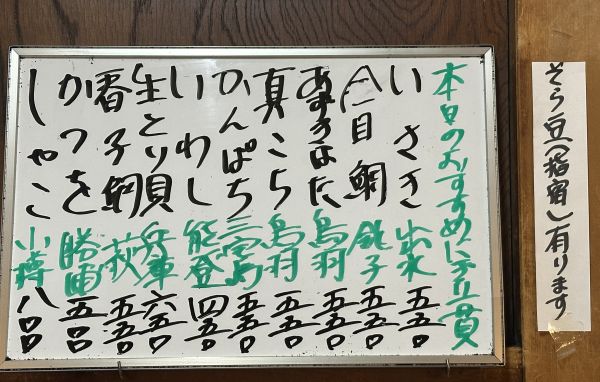 本日のおすすめにぎり一貫
いさき 出水 五五〇
金目鯛 銚子 五五〇
あずきはた 鳥羽 五五〇
真こち 鳥羽 五五〇
かんぱち 三宅島 五五〇
いわし 能登 四五〇
生とり貝 兵庫 六五〇
春子鯛 萩 五五〇
かつを 勝浦 五〇〇
しゃこ 小樽 八〇〇
そら豆(指宿)有ります